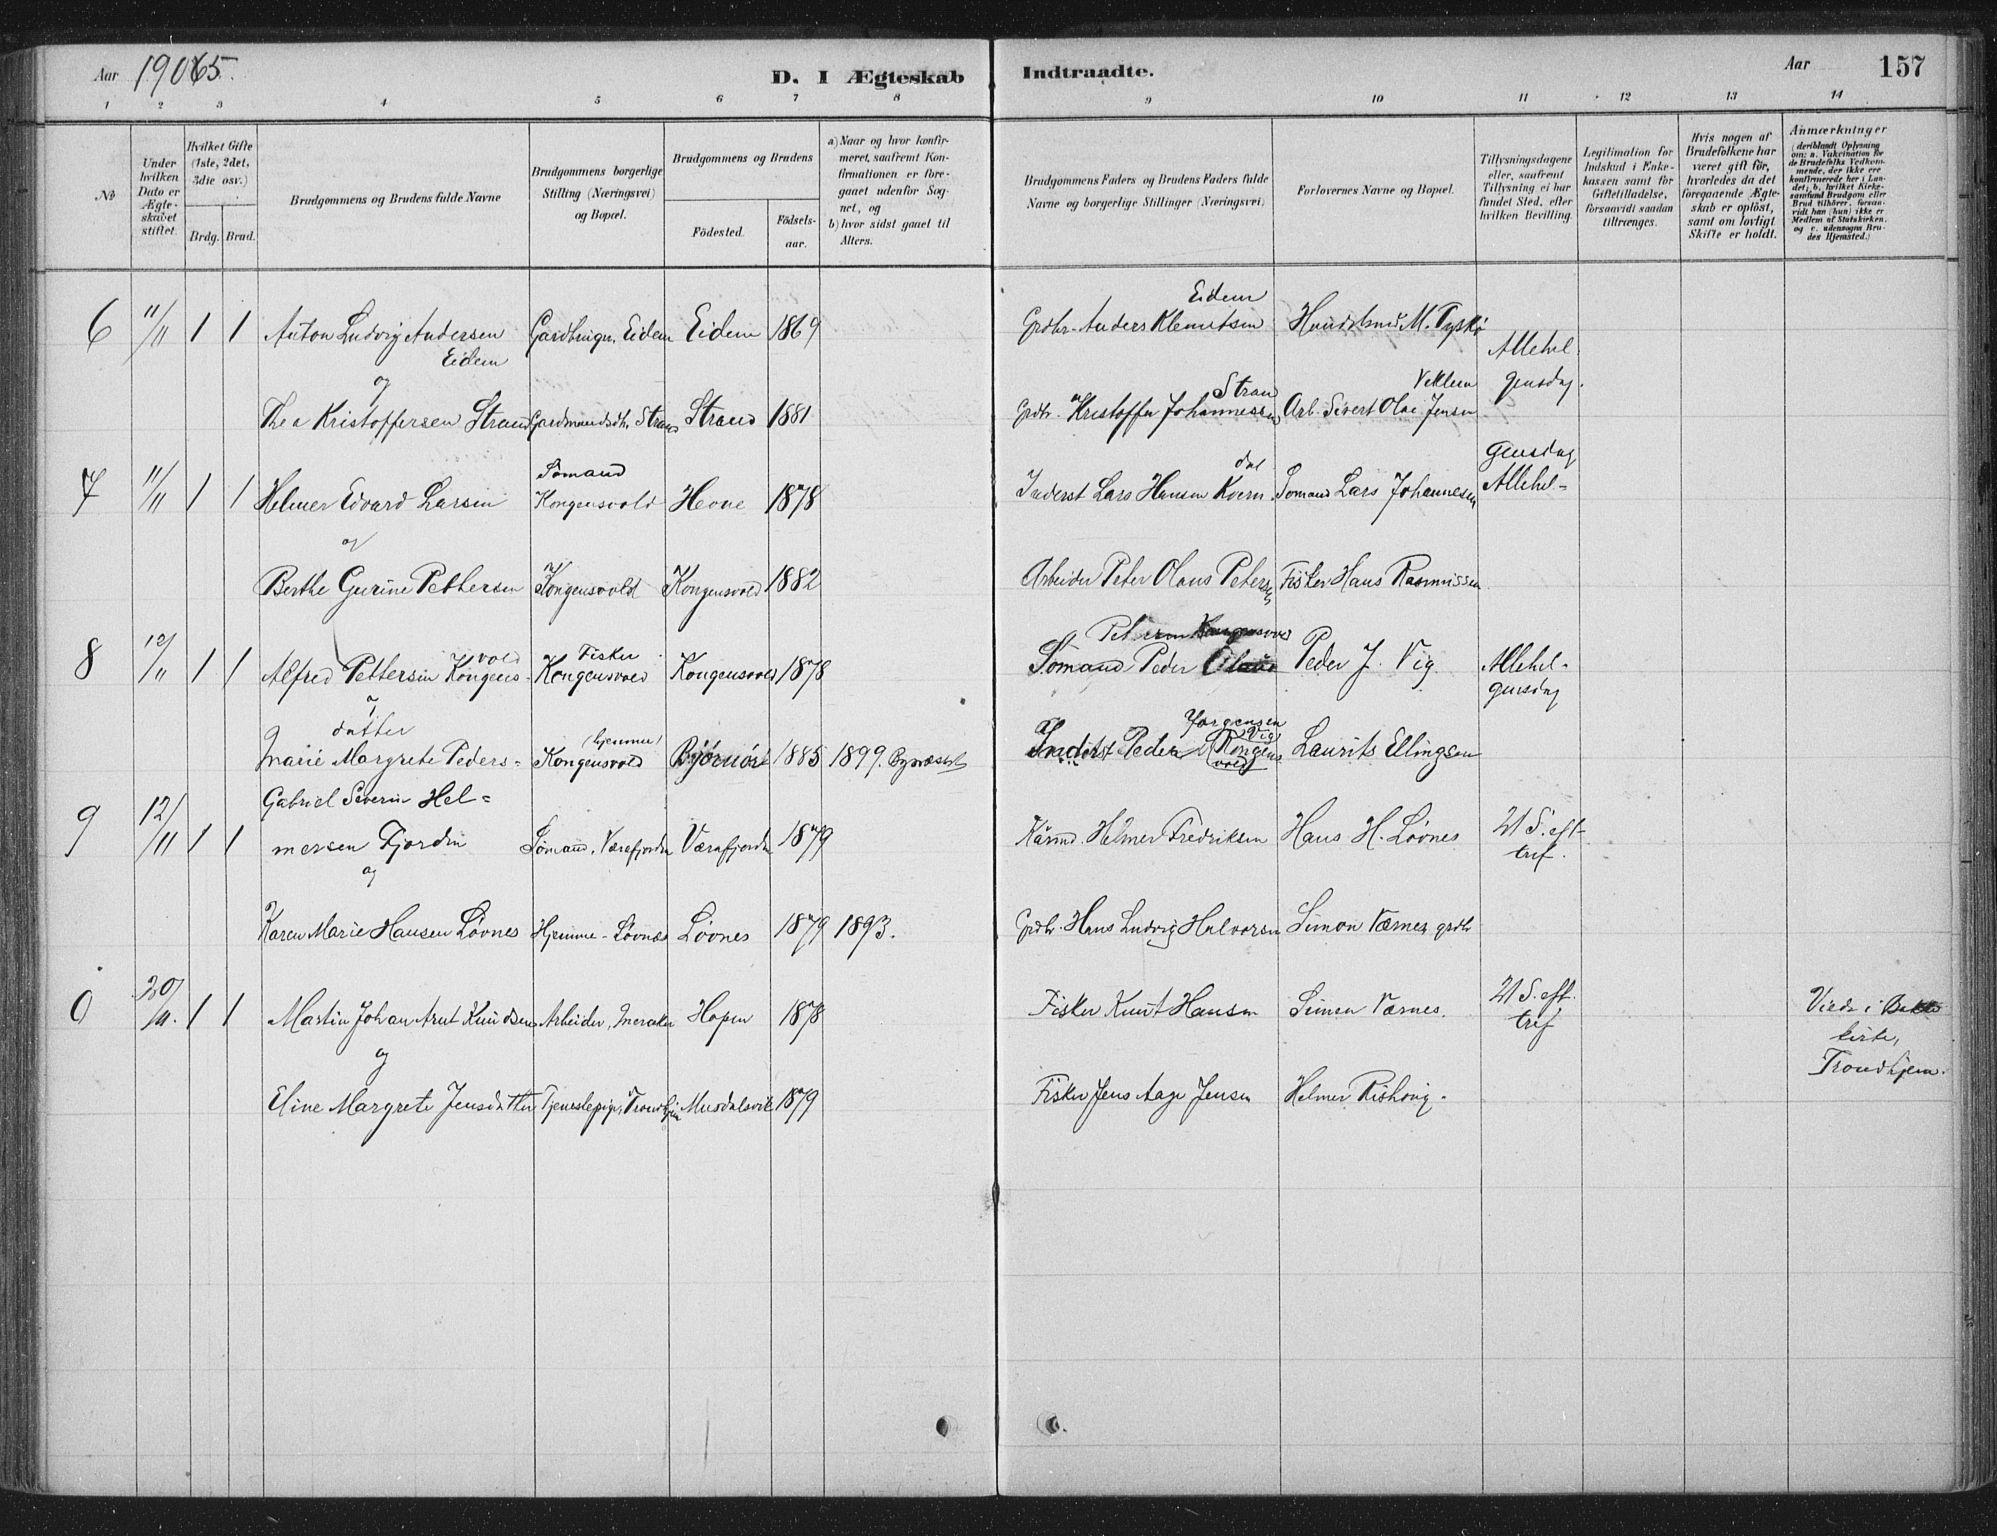 Aar 19065. D. I Ægteskab Indtraadte. Aar 157
1 2 3 4 5 6 7 8 9 10 11 12 13 14
№
Under hvilken Dato er Ægteskabet stiftet.
Hvilket Gifte (1ste, 2det, 3die osv.)
Brdg. Brud.
Brudgommens og Brudens fulde Navne
Brudgommens borgerlige Stilling (Næringsvei) og Bopel.
Brudgommens og Brudens
Födested.
Födselsaar.
a) Naar og hvor konfirmeret, saafremt Konfirmationen er foregaaet udenfor Sognet, og
b) hvor sidst gaaet til Alters.
Brudgommens Faders og Brudens Faders fulde Navne og borgerlige Stillinger (Næringsvei)
Forlovernes Navne og Bopel.
Tillysningsdagene eller, saafremt Tillysning ei har fundet Sted, efter hvilken Bevilling.
Legitimation for Indskud i Enkekassen samt for Giftetilladelse, forsaavidt saadan tiltrænges.
Hvis nogen af Brudefolkene har været gift för, hvorledes da det foregaaende Ægteskab er oplöst, samt om lovligt Skifte er holdt.
Anmærkninger
(deriblandt Oplysning om: a. Vakcination for de Brudefolks Vedkommende, der ikke ere konfirmerede her i Landet; b. hvilket Kirkesamfund Brudgom eller Brud tilhörer, forsaavidt han (hun) ikke er Medlem af Statskirken, og c. udensogns Brudes Hjemsted.)
6 11/11 1 1 Anton Ludvig Andersen Eidem Gardbruger, Eidem Eidem 1869 Grdbr. Anders Klemetsen Eidem M. Tyskö Allehelgensdag.
og
Thea Kristoffersen Strand Gardmandsdtr, Strand Strand 1881 Grdbr. Kristoffer Johannessen Strand Arb. Sivert Olai Jensen
7 11/11 1 1 Helmer Edvard Larsen Sømand Kongensvold Hevne 1878 Inderst Lars Hansen Kverndal Sømand Lars Johannesen Allehelgensdag
og
Berthe Gurine Pettersen Kongensvold Kongensvold 1882 Arbeider Peter Olaus Petersen Fisker Hans Rasmussen
8 12/11 1 1 Alfred Pettersen Kongensvold Fisker Kongensvold Kongensvold 1878 Sømand Peder Olaus Petersen Kongensvold Peder J. Vig Allehelgensdag
og
Marie Margrete Pedersdatter (hjemme) Kongensvold Bjørnør 1885 1899. Inderst Peder Jørgensen Vig Kongensvold Laurits Ellingsen
9 12/11 1 1 Gabriel Severin Helmersen Fjorden Sømand, Værafjorden Værafjorden 1879 Kårmd. Helmer Fredriksen Hans H. Løvnes 21 S. eft. tref.
og
Karen Marie Hansen Løvnes Hjemme - Løvnes Løvnes 1879 1893. Grdbr. Hans Ludvig Halvorsen Simon Værnes grdbr
0 20/11. 1 1 Martin Johan Arnt Knudsen Arbeider, Meraker Hopen 1878 Fisker Knut Hansen Simon Værnes. 21 S. eft. tref Viede i Bakke kirke, Trondhjem.
og
Eline Margrete Jensdatter Tjenestepige, Trondhjem Musdalsvik 1879 Fisker Jens Aage Jensen Helmer Rishaug.